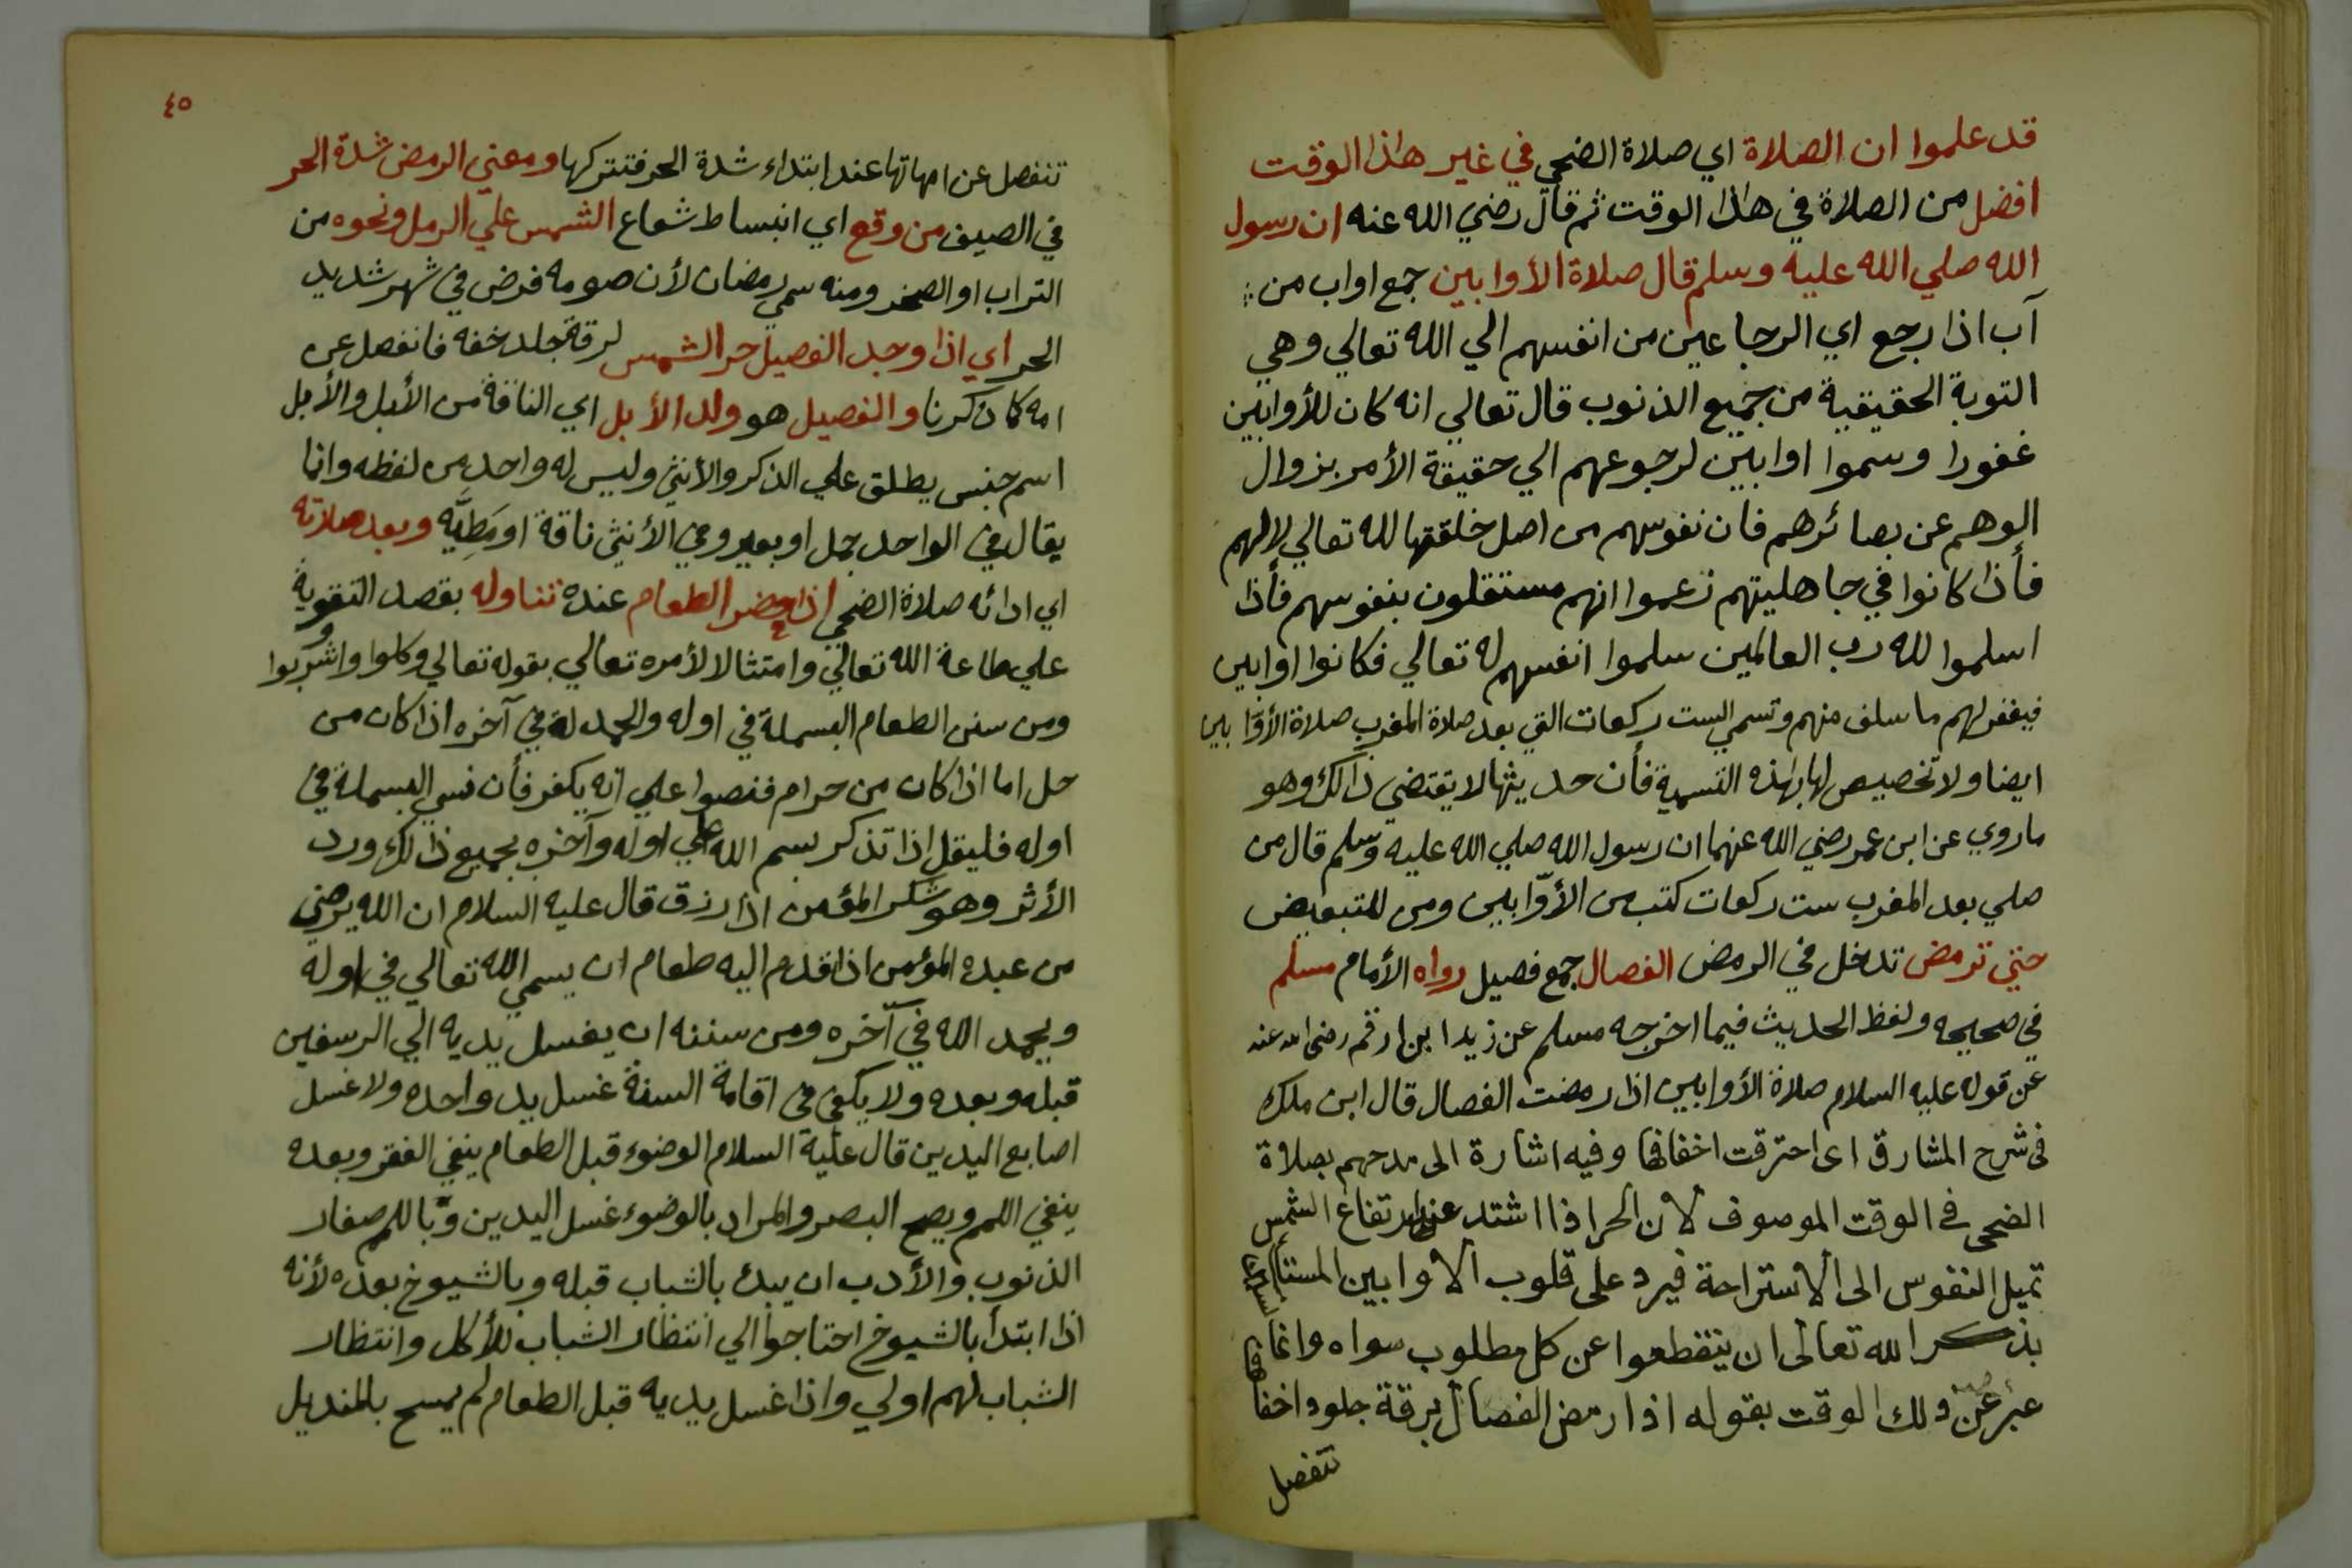 قد علموا ان الصلاة اي صلاة الضحي في غير هاذا الوقت
افضل من الصلاة في هاذا الوقت ثم قال رضي الله عنه ان رسول
الله صلي الله عليه وسلم قال صلاة الأوابين جمع اواب من
آب اذا رجع اي الرجاعين من انفسهم الي الله تعالي وهي
التوبة الحقيقية من جميع الذنوب قال تعالي انه كان للأوابين
غفورا وسموا اوابين لرجوعهم الي حقيقة الأمر بزوال
الوهم عن بصائرهم فان نفوسهم من اصل خلقتها لله تعالي لا لهم
فأذا كانوا في جاهليتهم زعموا انهم مستقلون بنفوسهم فأذا
اسلموا لله رب العالمين سلموا انفسهم له تعالي فكانوا اوابين
فيغفر لهم ما سلف منهم وتسمي الست ركعات التي بعد صلاة المغرب صلاة الأوّابين
ايضا ولا تخصيص لها بهذه التسمية فأن حديثها لا يقتضي ذالك وهو
ما روي عن ابن عمر رضي الله عنهما ان رسول الله صلي الله عليه وسلم قال من
صلي بعد المغرب ست ركعات كتب من الأوّابين ومن للتبعيض
حتي ترمض تدخل في الرمض الفصال جمع فصيل رواه الأمام مسلم
في صحيحه ولفظ الحديث فيما اخرجه مسلم عن زيد ابن ارقم رضى الله عنه
عن قوله عليه السلام صلاة الأوابين اذا رمضت الفصال قال ابن ملك
فى شرح المشارق اى احترقت اخفافها وفيه اشارة الى مدحهم بصلاة
الضحى في الوقت الموصوف لان الحر اذا اشتد عند ارتفاع الشمس
تميل النفوس الى الاستراحة فيرد على قلوب الاوابين المستأنسين
بذكر الله تعالى ان ينقطعوا عن كل مطلوب سواه وانما
عبر عن ذلك الوقت بقوله اذا رمض الفصال لرقة جلود اخفافها
تنفصل
٤٥
تنفصل عن امهاتها عند ابتداء شدة الحر فتتركها ومعني الرمض شدة الحر
في الصيف من وقع اي انبساط شعاع الشمس علي الرمل ونحوه من
التراب او الصخر ومنه سمي رمضان لأن صومه فرض في شهر شديد
الحر اي اذا وجد الفصيل حر الشمس لرقة جلد خفه فانفصل عن
امه كما ذكرنا والفصيل هو ولد الأبل اي الناقة من الأبل والأبل
اسم جنس يطلق علي الذكر والأنثي وليس له واحد من لفظه وانما
يقال في الواحد جمل او بعير وفي الأنثي ناقة او مَطِيَّه وبعد صلاته
اي ادائه صلاة الضحي اذا حضر الطعام عنده تناوله بقصد التقوية
علي طاعة الله تعالي وامتثالا لأمره تعالي بقوله تعالي وكلوا واشربوا
ومن سنن الطعام البسملة في اوله والحمدلة في آخره اذا كان من
حل اما اذا كان من حرام فنصوا علي انه يكفر فأن نسي البسملة في
اوله فليقل اذا تذكر بسم الله علي اوله وآخره بجميع ذالك ورد
الأثر وهو شكر المؤمن اذا رزق قال عليه السلام ان الله يرضي
من عبده المؤمن اذا قدم اليه طعام ان يسمي الله تعالي في اوله
ويحمد الله في آخره ومن سننه ان يغسل يديه الي الرسغين
قبله وبعده ولا يكفي في اقامة السنة غسل يد واحده ولا غسل
اصابع اليدين قال عليه السلام الوضوء قبل الطعام ينفي الفقر وبعده
ينفي اللمم ويصح البصر والمراد بالوضوء غسل اليدين وباللمم صغار
الذنوب والأدب ان يبدء بالشباب قبله وبالشيوخ بعده لأنه
اذا ابتدأ بالشيوخ احتاجوا الي انتظار الشباب للأكل وانتظار
الشباب لهم اولي واذا غسل يديه قبل الطعام لم يمسح بالمنديل